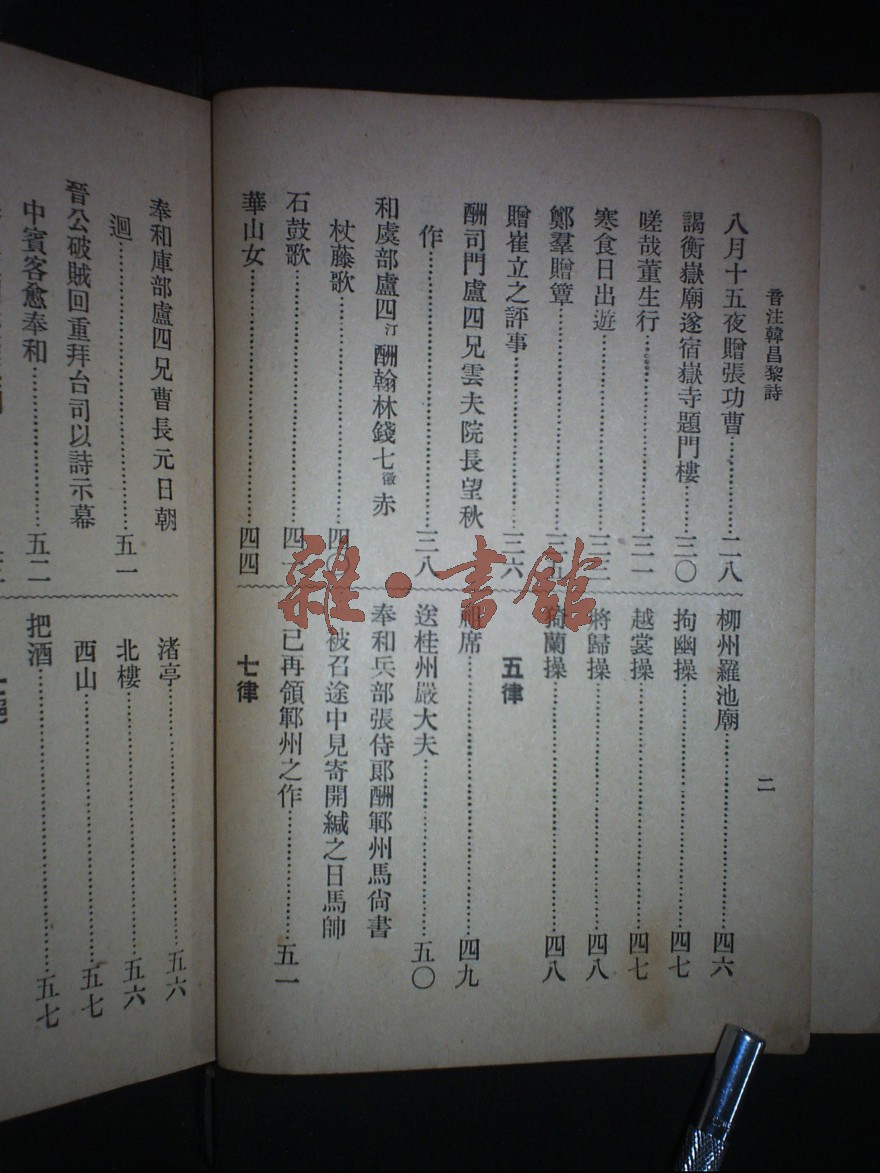 音注韓昌黎詩
二
八月十五夜贈張功曹…………二八
謁衡嶽廟遂宿嶽寺題門樓……三〇
嗟哉董生行…………三一
寒食日出遊…………三三
鄭羣贈簟…………三五
贈崔立之評事…………三六
酬司門盧四兄雲夫院長望秋
作…………三八
和虞部盧四汀酬翰林錢七徽赤
杖藤歌…………四〇
石鼓歌…………四一
華山女…………四四
柳州羅池廟…………四六
拘幽操…………四七
越裳操…………四七
將歸操…………四八
猗蘭操…………四八
五律
祖席…………四九
送桂州嚴大夫…………五〇
奉和兵部張侍郞酬鄆州馬尙書
被召途中見寄開緘之日馬帥
已再領鄆州之作…………五一
七律
奉和庫部盧四兄曹長元日朝
迴…………五一
晉公破賊回重拜台司以詩示幕
中賓客愈奉和…………五二
渚亭…………五六
北樓…………五六
西山…………五七
把酒…………五七
雜·書館